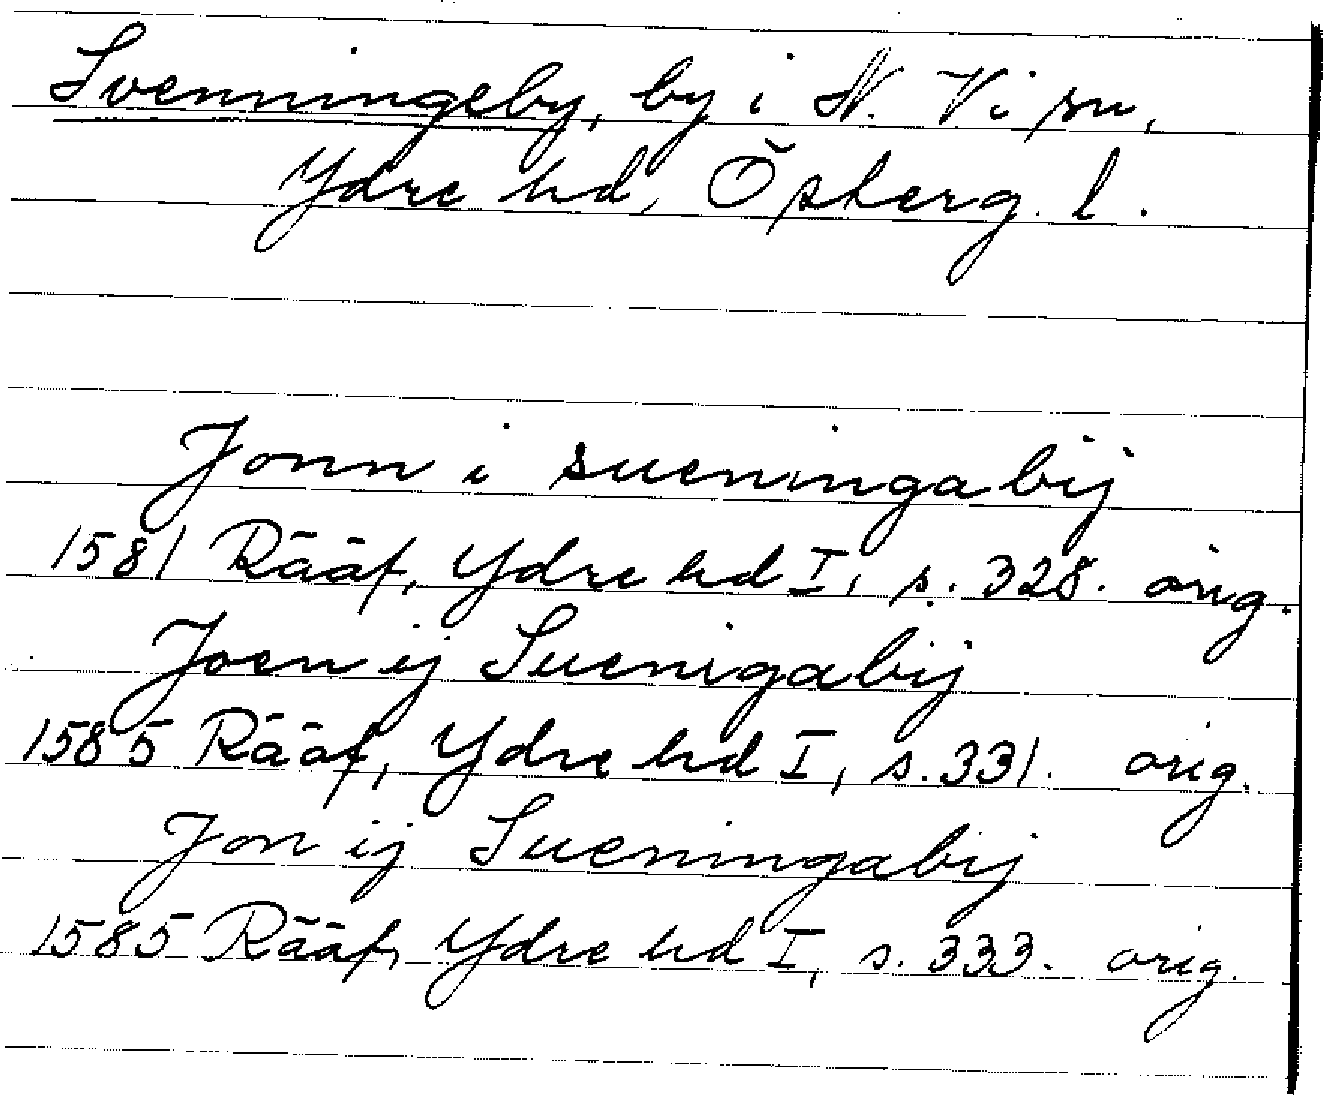 Svenningeby, by i N. Vi sn,
Ydre hd, Österg. l.
Jonn i sueningabij
1581 Rääf, Ydre hd I, s. 328. orig.
Joen ij Suenigabij
1585 Rääf, Ydre hd I, s. 331. orig.
Jon ij Sueningabij
1585 Rääf, Ydre hd I, s. 333. orig.